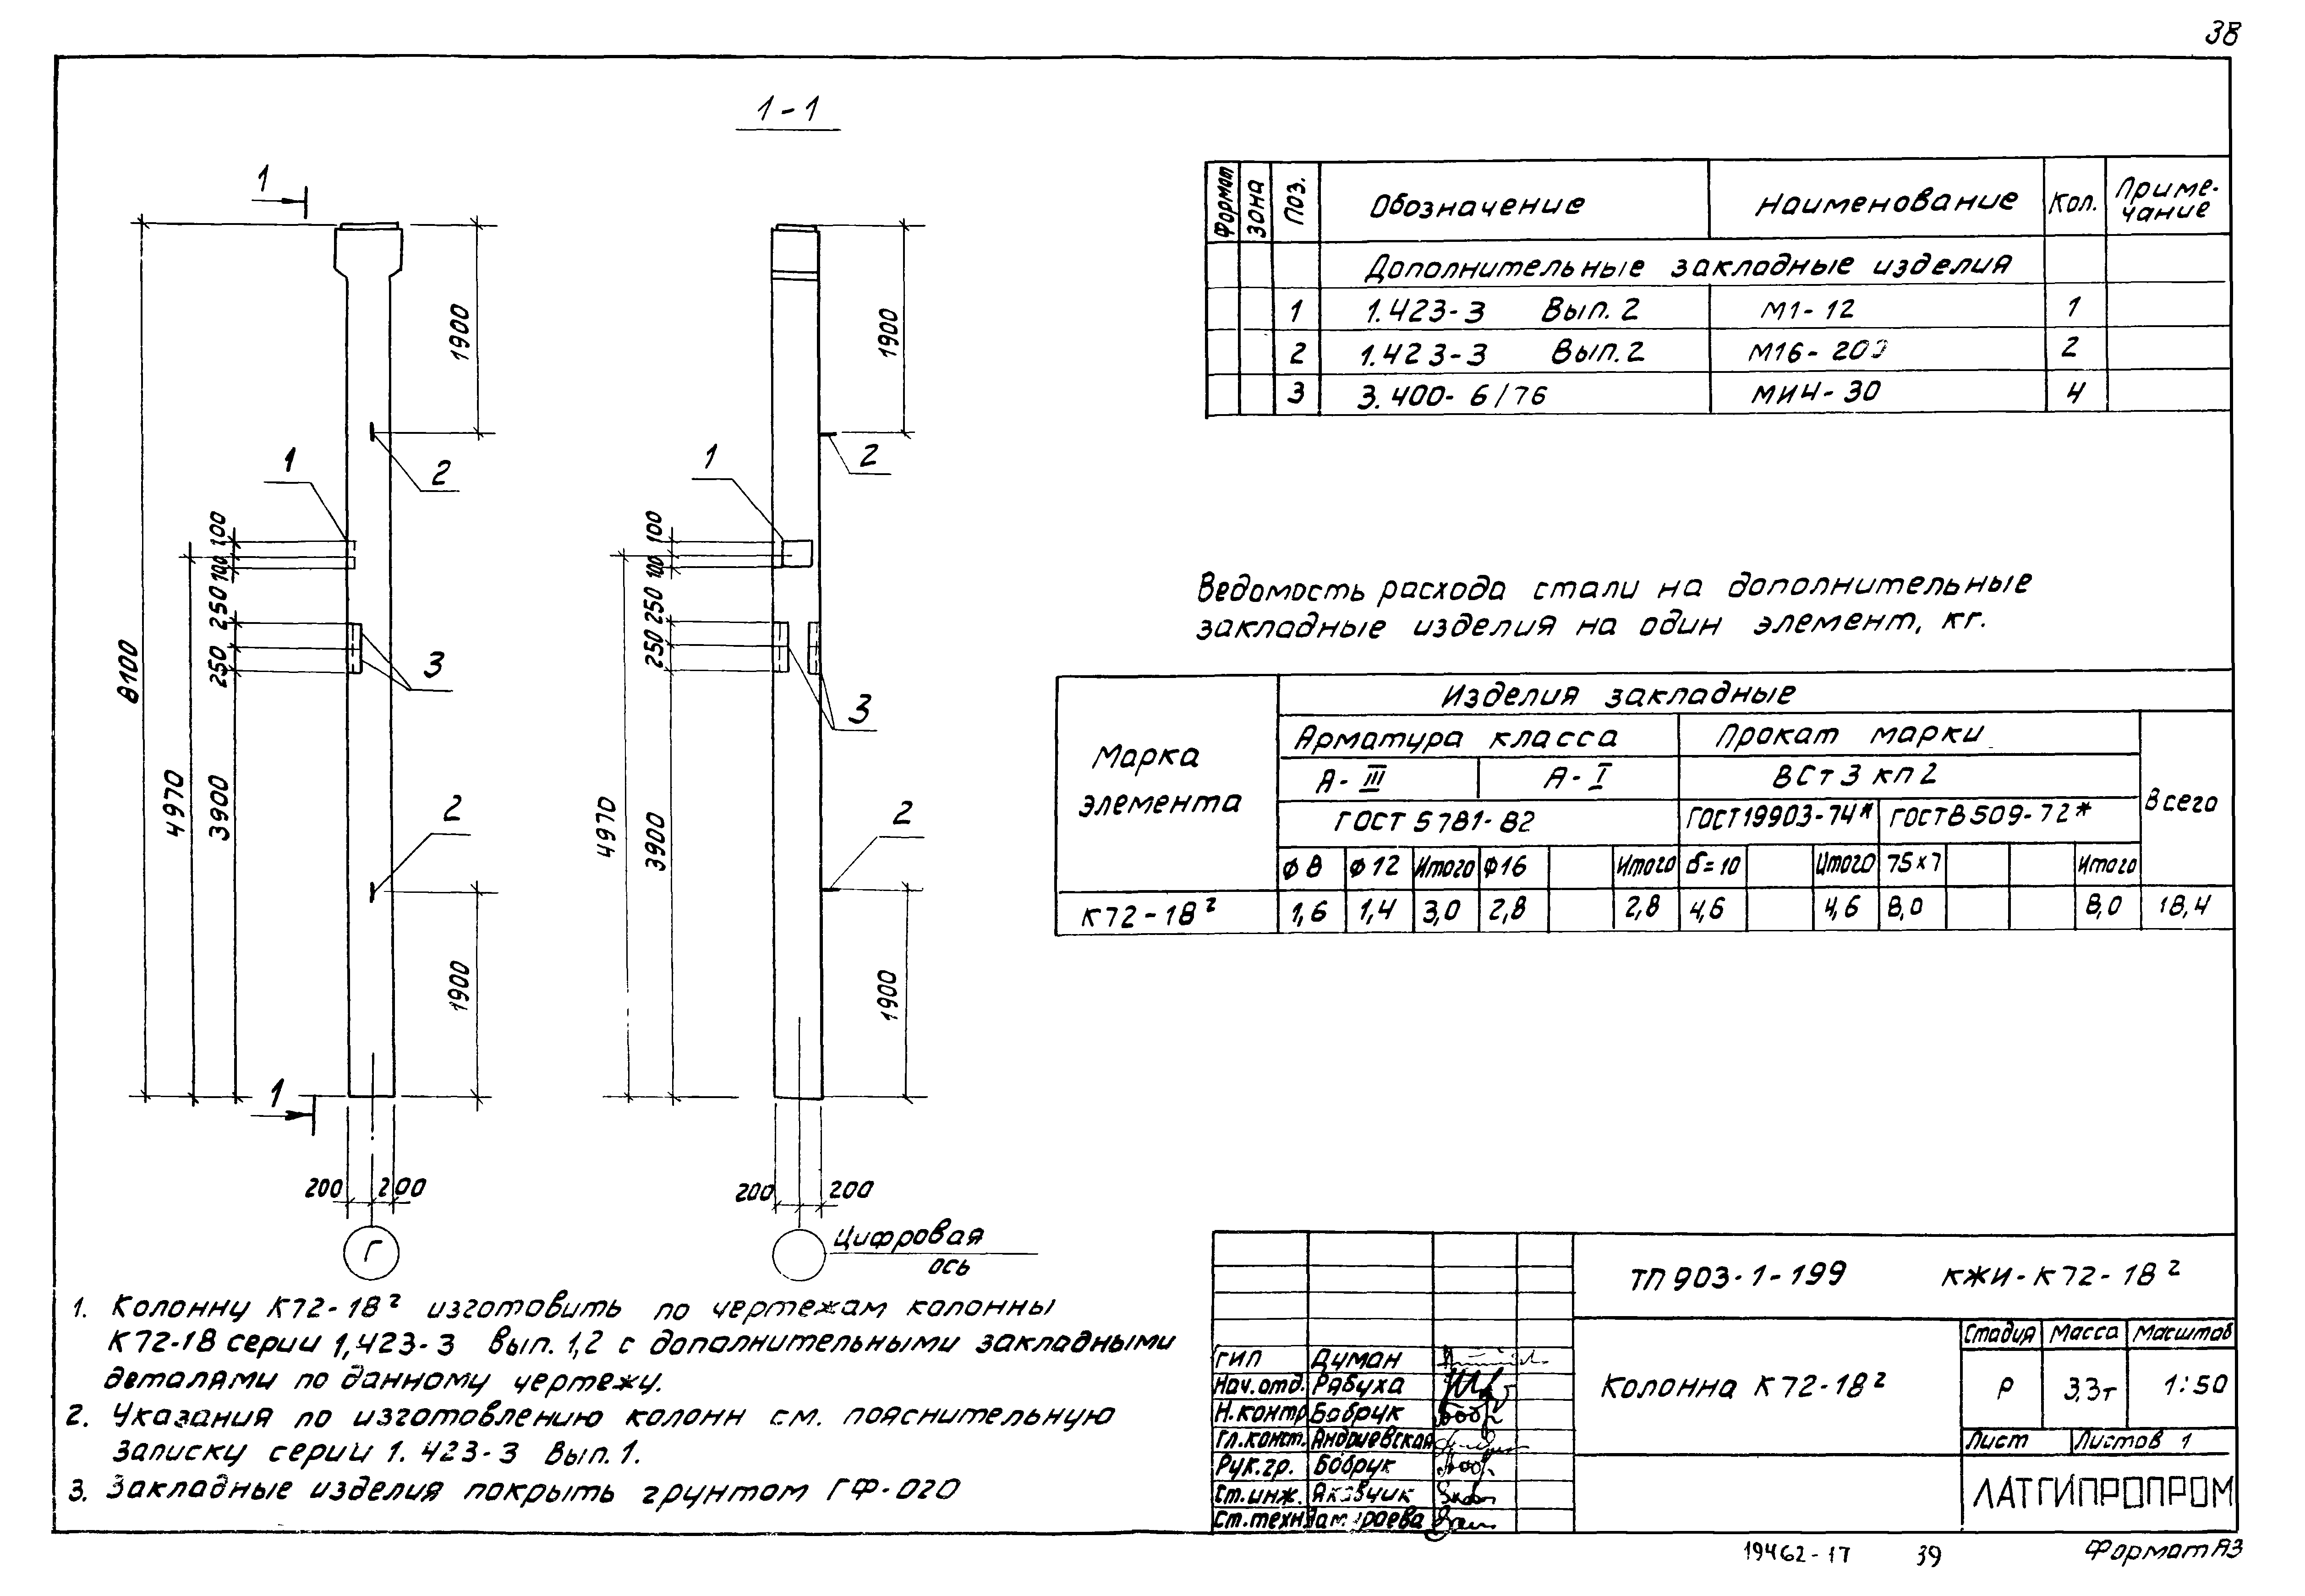 38
1-1
1
1900
1
2
100
100
250
250
8100
4970
3900
3
2
1900
1
200 200
Г
1900
1
2
100
100
250
250
4970
3900
3
2
1900
200 200
Цифровая
ось
Формат Зона Поз. Обозначение Наименование Кол. Приме-
чание
Дополнительные закладные изделия
1 1.423-3 Вып.2 М1-12 1
2 1.423-3 Вып.2 2
3 3.400-6/76 МИ4-30 4
Ведомость расхода стали на дополнительные
закладные изделия на один элемент, кг.
Марка
элемента
Изделия закладные
Арматура класса Прокат марки
А-III А-I ВСт3кп2 Всего
ГОСТ 5781-82 ГОСТ 19903-74* ГОСТ 8509-72*
Ф8 Ф12 Итого Ф16 Итого δ=10 Итого 75х7 Итого
К72-18² 1,6 1,4 3,0 2,8 2,8 4,6 4,6 8,0 8,0 18,4
1. Колонну К72-18² изготовить по чертежам колонны
К72-18 серии 1,423-3 вып. 1,2 с дополнительными закладными
деталями по данному чертежу.
2. Указания по изготовлению колонн см. пояснительную
записку серии 1.423-3 Вып.1.
3. Закладные изделия покрыть грунтом ГФ-020
ТП 903-1-199 КЖИ-К72-18²
Колонна К72-18²
Стадия Масса Масштаб
Р 3,3т 1:50
Лист Листов 1
ЛАТГИПРОПРОМ
ГИП Думан
Нач.отд. Рябуха
Н.контр Бобрук
Гл.конст. Андриевская
Рук.гр. Бобрук
Ст.инж. Яковчик
Ст.техн
19462-17 39 Формат А3